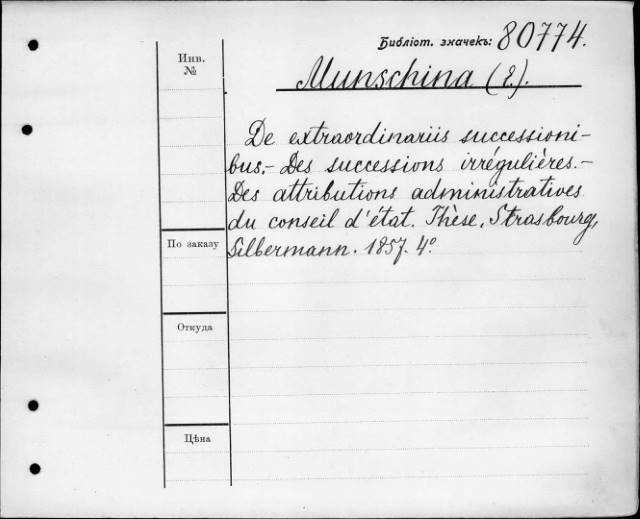 Библіот. значекъ: 80774.
Инв.
№
Munschina (E.).
De extraordinariis successioni-
bus.- Des successions irrégulières.-
Des attributions administratives
du conseil d'état. Thèse, Strasbourg,
Silbermann. 1857. 4º
По заказу
Откуда
Цѣна